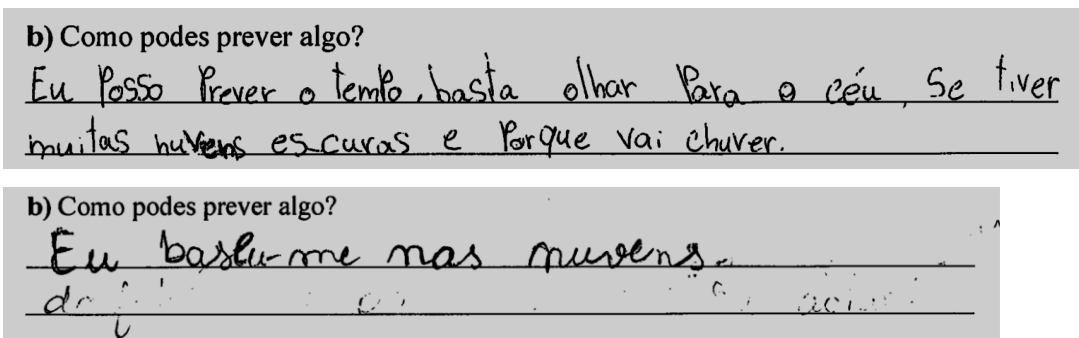 b) Como podes prever algo?
Eu Posso Prever o tempo, basta olhar Para o céu, Se tiver
muitas nuvens escuras e Porque vai chuver.
b) Como podes prever algo?
Eu baseu-me nas nuvens.